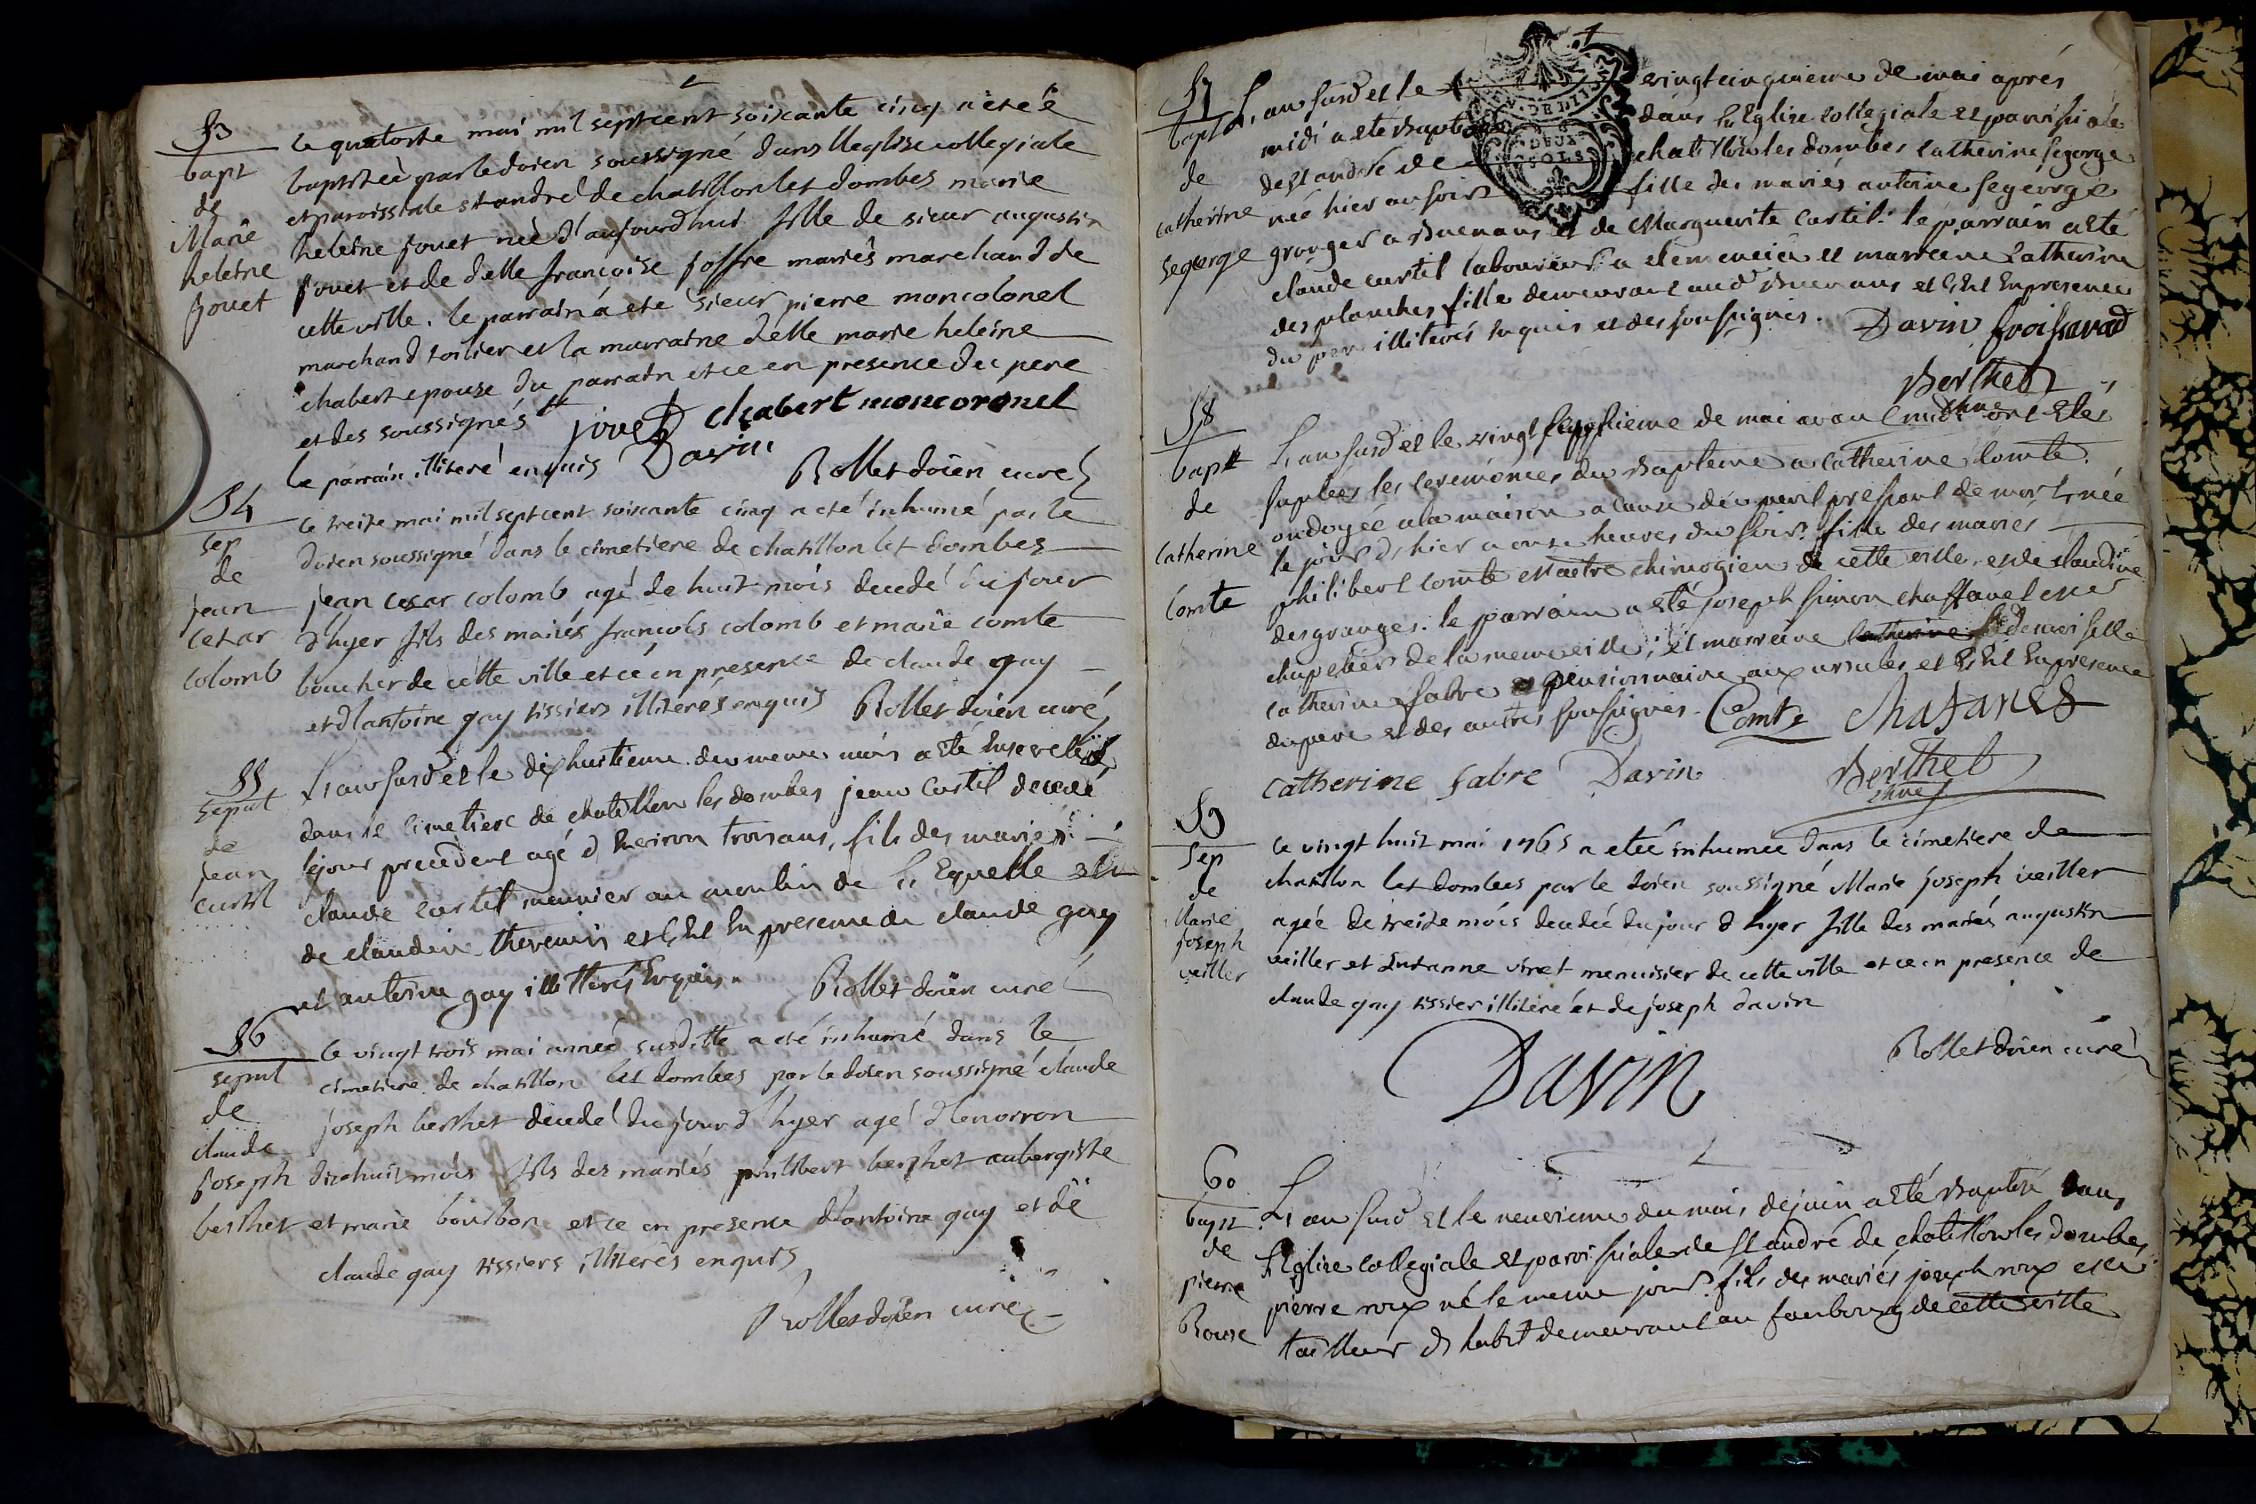 53
bapt
de
Marie
heleine
Jouet
le quatorse mai mil sept cent soixante cinq a eté
baptiseè par le doien soussigné dans lleglise collegiale
et paroissiale st andré de chatillon les dombes marie
heleine jouet neè d'aujourdhui fille de sieur augustin
jouet et de delle françoise joffre mariés marchand de
cette ville. le parrain a eté sieur pierre moncolonel
marchand toilier et la marraine delle marie heleine
chabert epouse du parrain et ce en presence du pere
et des soussignés jouet chabert moncoronel
le parrain illiteré enquis Davin
Rollet doien curé
54
sep
de
jean
cesar
colomb
le treise mai mil sept cent soixante cinq a eté inhumé par le
doien soussigné dans le cimetiere de chatillon les dombes
jean cesar colomb agé de huit mois decedé du jour
d'hyer fils des mariés françois colomb et marie comte
boucher de cette ville et ce en presence de claude gay
et d'antoine gay tissiers illiterés enquis Rollet doien curé
55
sepult
de
jean
curtil
L'an susd et le dix huitieme du meme mois a eté Enseveli
dans le cimetiere de chatillon les dombes jean Curtil decedé
le jour precedent agé d Environ trois ans, fils des mariés
claude curtil meunier au moulin de l'Equelle et
de claudine thevenin et ce En presence de claude gay
et antoine gay illitterés Enquis. Rollet doien curé
56
sepult
de
claude
joseph
berthet
le vingt trois mai année susditte a eté inhumé dans le
cimetiere de chatillon les dombes par le doien soussigné claude
joseph berthet decedé du jour d'hyer agé d'environ
dix huit mois fils des mariés philibert berthet aubergiste
et marie bourbon et ce en presence d'antoine gay et de
claude gay tissiers illiterés enquis
Rollet doien curé
57
bapt
de
catherine
segeorge
L'an susd et le vingt cinquieme de mai après
midi a eté Baptisée dans l'Eglise collegiale et parroissiale
de st andré de chatillon les dombes catherine segeorge
neé hier au soir fille des mariés antoine segeorge
granger a Buenans et de Marguerite Curtil. le parrain a eté
claude curtil laboureur a clemencia et marreine Catherine
des planches fille demeurant aud Buenans et ce En presence
du pere illiterés Enquis et des soussignés. Davin froissard
Berthet
vicaire
58
bapt
de
Catherine
Comte
L'an susd et le vingt septieme de mai avant midi ont Eté
supleés les ceremonies du Bapteme a Catherine Comte
ondoyeé a la maison a cause du peril pressant de mort, neé
le jour d'hier a onze heures du soir. fille des mariés
philibert Comte Maitre chirurgien de cette ville et de claudine
desgranges. le parrain a eté joseph simon chaffanel
chapelier de la meme ville; et marreine demoiselle
catherine fabre pensionnaire aux ursules et ce En presence
du pere et des autres soussignés. Comte Chafanel
Catherine fabre Davin
Berthet
vicaire
59
Sep
de
Marie
joseph
veiller
le vingt huit mai 1765 a eteé inhumée dans le cimetiere de
chatillon les dombes par le doien soussigné Marie joseph veiller
agée de treise mois decedée du jour d'hyer fille des mariés augustin
veiller et Suzanne vinet menuisier de cette ville et ce en presence de
claude gay tissier illiteré et de joseph davin
Davin
Rollet doien curé
60
bapt
de
pierre
Rouse
L'an susd Et le neuvieme du mois de juin a eté Baptisé dans
l'Eglise collegiale et parroissiale de st andré de chatillon les dombes
pierre roux né le meme jour. fils des mariés joseph roux
tailleur d habit demeurant au faubourg de cette ville